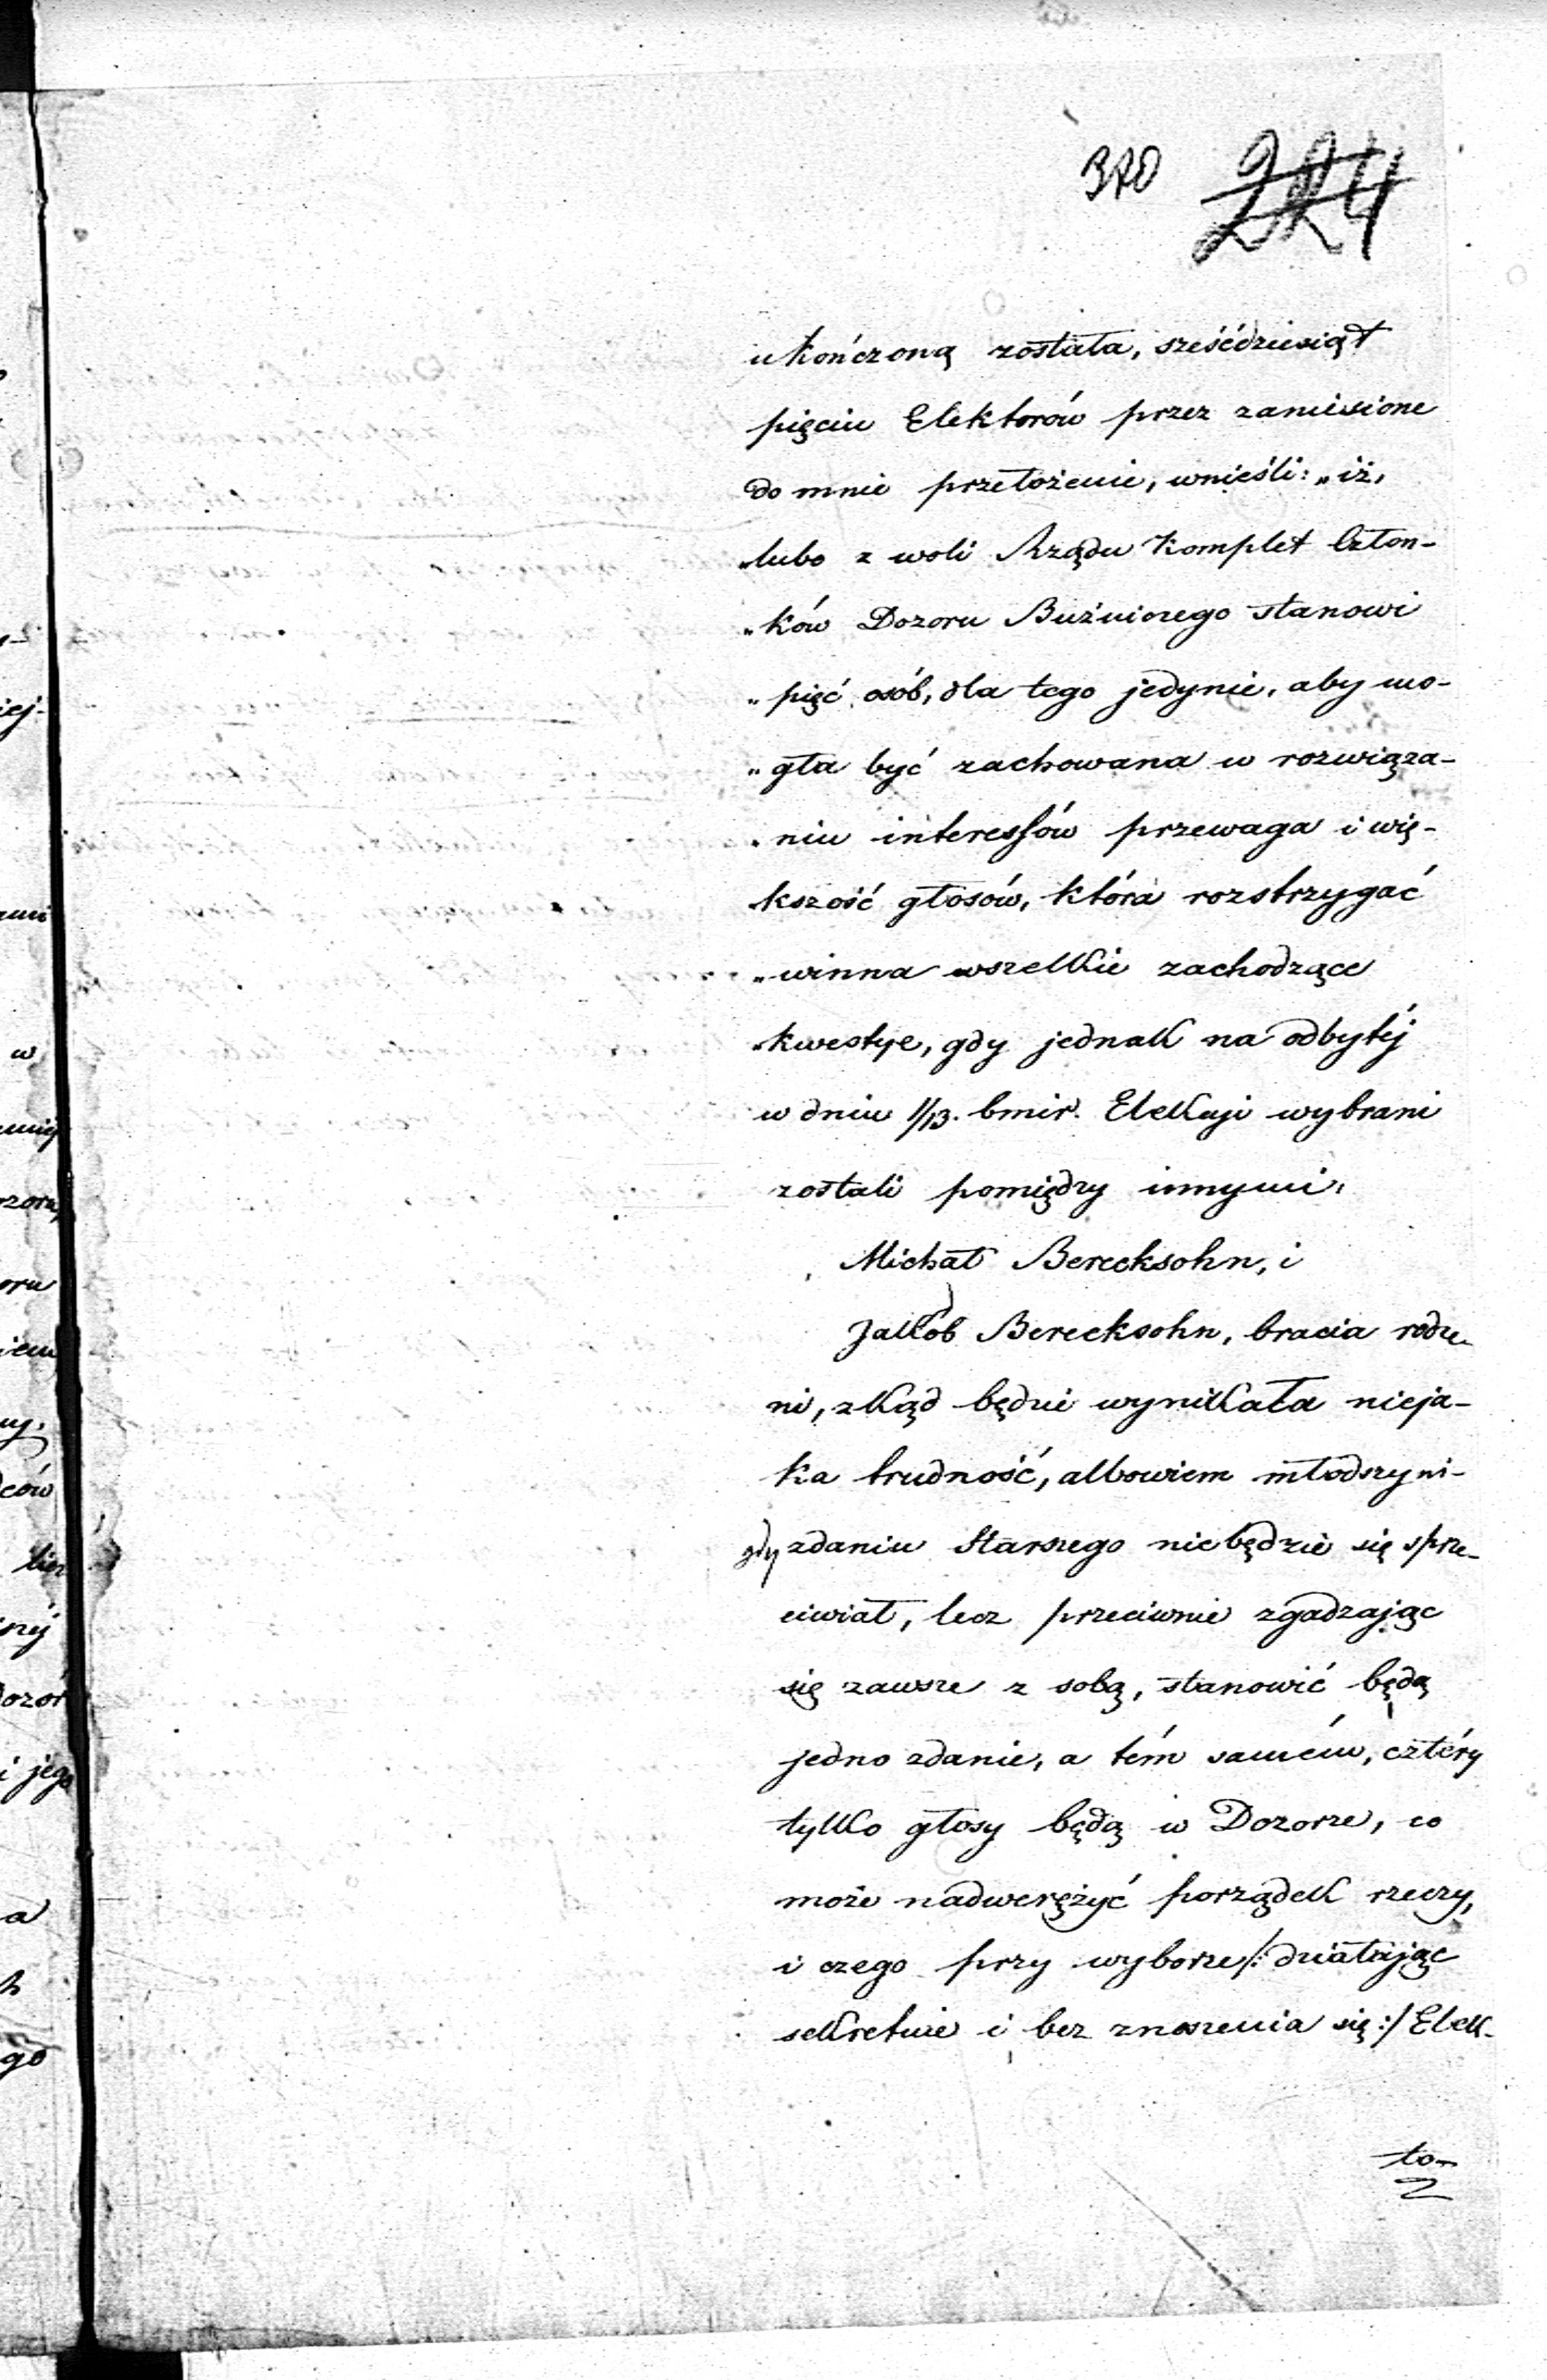 370 224
ukończoną została, sześćdziesiąt
pięciu Elektorów przez zaniesione
do mnie przełożenie, wnieśli: „iż,
„lubo z woli Rządu Komplet Człon-
„ków Dozoru Bużniczego stanowi
„pięć osób, dla tego jedynie, aby mo-
„gła być zachowana w rozwiąza-
„niu interessów przewaga i wię-
kszość głosów, która rozstrzygać
„winna wszelkie zachodzące
„kwestye, gdy jednak na odbytéj
w dniu 1/13. bmir. Elekcyi wybrani
zostali pomiędzy innymi,
Michał Berecksohn, i
Jakób Berecksohn, bracia rodze-
ni, zkąd będzie wynikała nieja-
ka trudność, albowiem młodszy ni-
gdy zdaniu Starszego niebędzie się sprze-
ciwiał, lecz przeciwnie zgadzając
się zawsze z sobą, stanowić będą
jedno zdanie, a tém samém, cztéry
tylko głosy będą w Dozorze, co
może nadwerężyć porządek rzeczy,
i czego przy wyborze /: działając
sekretnie i bez znoszenia się :/ Elek-
to-